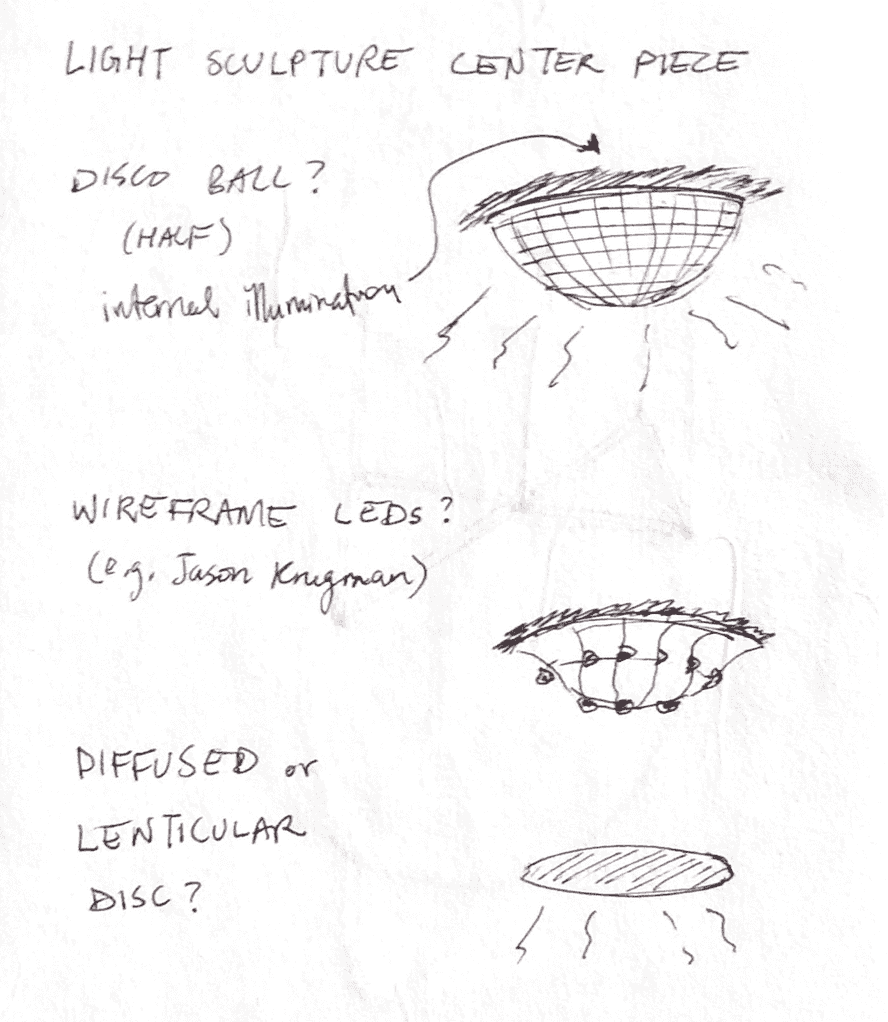 LIGHT SCULPTURE CENTER PIECE
DISCO BALL?
(HALF)
internal illumination
WIREFRAME LEDs?
(e.g. Jason Krugman)
DIFFUSED or
LENTICULAR
DISC?